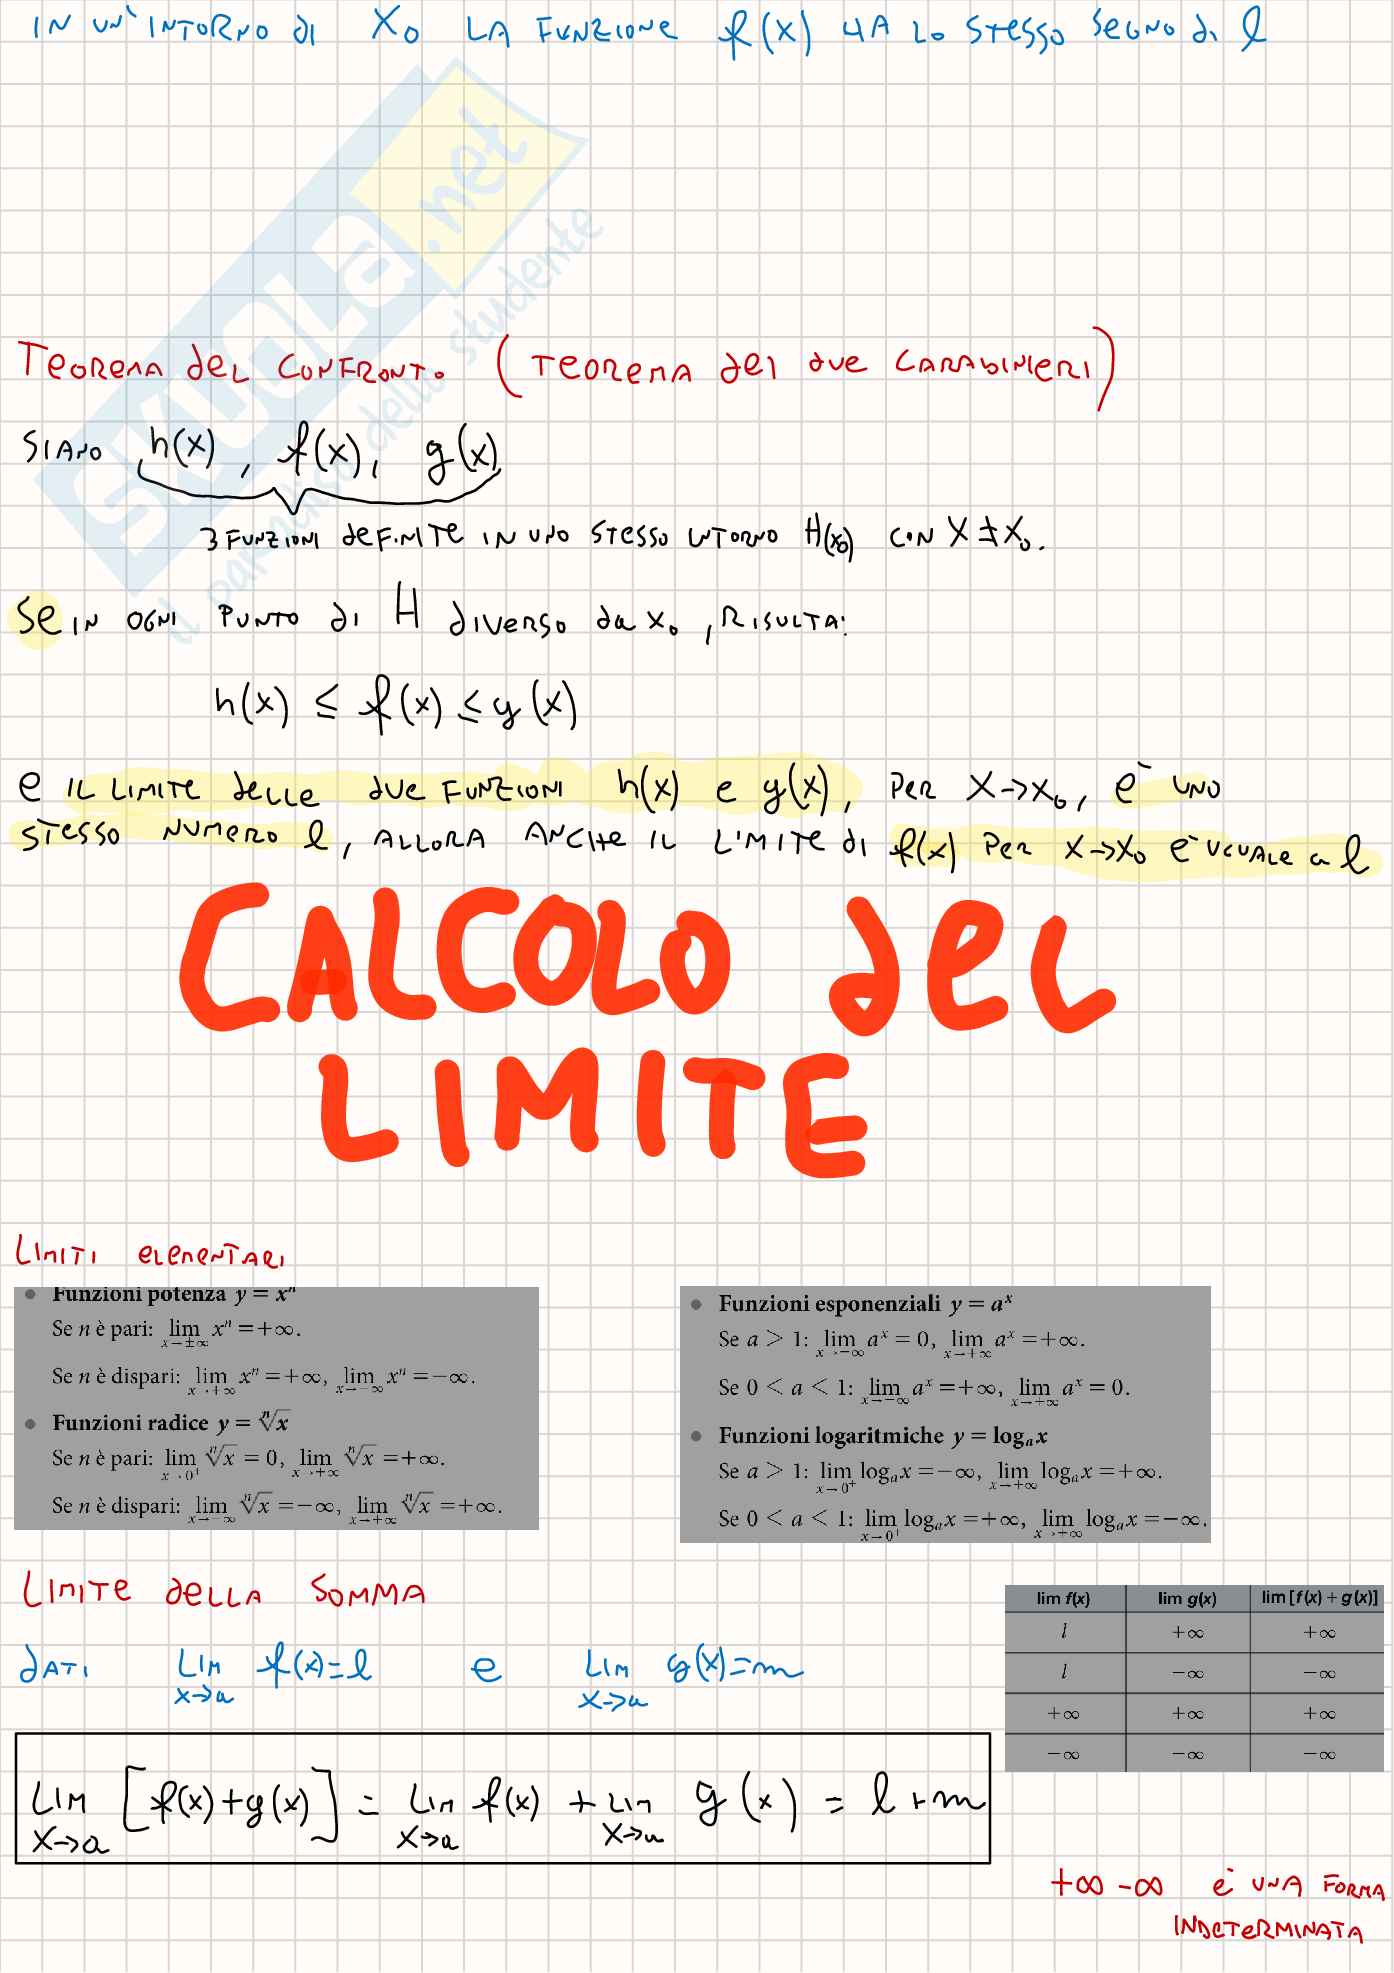 IN UN'INTORNO DI X₀ LA FUNZIONE f(x) HA LO STESSO SEGNO DI l
SKUOLA.net
il paradiso dello studente
TEOREMA DEL CONFRONTO. (TEOREMA DEI DUE CARABINIERI)
SIANO h(x), f(x), g(x)
3 FUNZIONI DEFINITE IN UNO STESSO INTORNO H(x₀) CON X ≠ X₀.
SE IN OGNI PUNTO DI H DIVERSO DA X₀, RISULTA:
h(x) ≤ f(x) ≤ g(x)
E IL LIMITE DELLE DUE FUNZIONI h(x) e g(x), PER X→X₀, E' UNO
STESSO NUMERO l, ALLORA ANCHE IL LIMITE DI f(x) PER X→X₀ E' UGUALE a l
CALCOLO DEL
LIMITE
LIMITI ELEMENTARI
• Funzioni potenza y = xⁿ
Se n è pari: lim x→±∞ xⁿ = +∞.
Se n è dispari: lim x→+∞ xⁿ = +∞, lim x→−∞ xⁿ = −∞.
• Funzioni radice y = ⁿ√x
Se n è pari: lim x→0⁺ ⁿ√x = 0, lim x→+∞ ⁿ√x = +∞.
Se n è dispari: lim x→−∞ ⁿ√x = −∞, lim x→+∞ ⁿ√x = +∞.
• Funzioni esponenziali y = aˣ
Se a > 1: lim x→−∞ aˣ = 0, lim x→+∞ aˣ = +∞.
Se 0 < a < 1: lim x→−∞ aˣ = +∞, lim x→+∞ aˣ = 0.
• Funzioni logaritmiche y = logₐx
Se a > 1: lim x→0⁺ logₐx = −∞, lim x→+∞ logₐx = +∞.
Se 0 < a < 1: lim x→0⁺ logₐx = +∞, lim x→+∞ logₐx = −∞.
LIMITE DELLA SOMMA
DATI LIM X→a f(x)=l e LIM X→a g(x)=m
LIM X→a [f(x)+g(x)] = LIM X→a f(x) + LIM X→a g(x) = l+m
lim f(x) lim g(x) lim [f(x) + g(x)]
l +∞ +∞
l −∞ −∞
+∞ +∞ +∞
−∞ −∞ −∞
+∞ −∞ E' UNA FORMA
INDETERMINATA